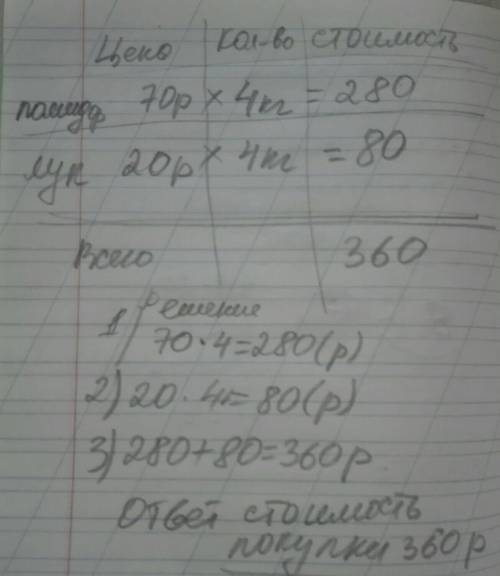 Цена Кол-во стоимость
помид 70р × 4кг = 280
лук 20р × 4кг = 80
Всего 360
Решение
1) 70·4=280(р)
2) 20·4=80(р)
3) 280+80=360р
Ответ стоимость
покупки 360р